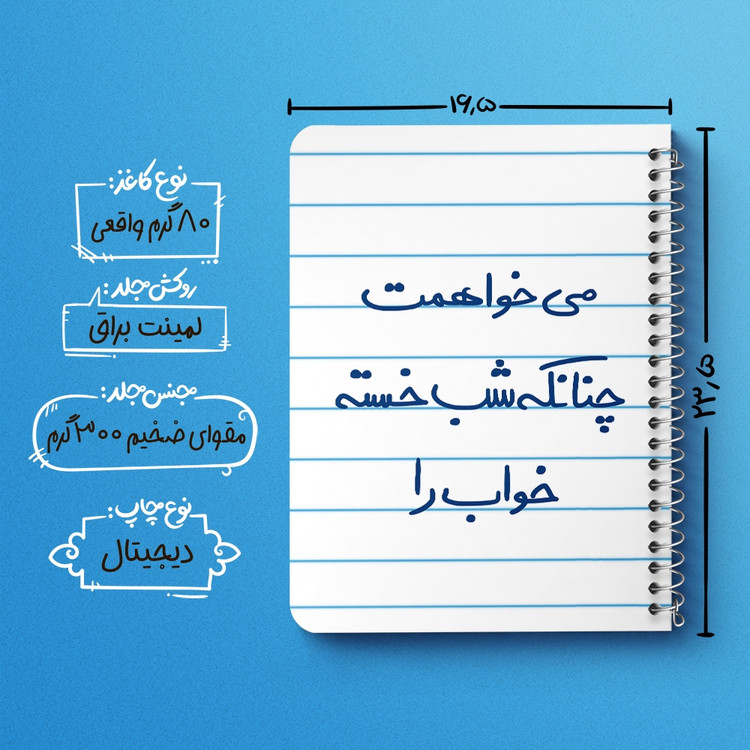 ۱۶٫۵
نوع کاغذ:
۸۰ گرم واقعی
روکش مجلد:
لمینت براق
جنس مجلد:
مقوای ضخیم ۳۰۰ گرم
نوع چاپ:
دیجیتال
می خواهمت
چنانکه شب خسته
خواب را
۲۳٫۵